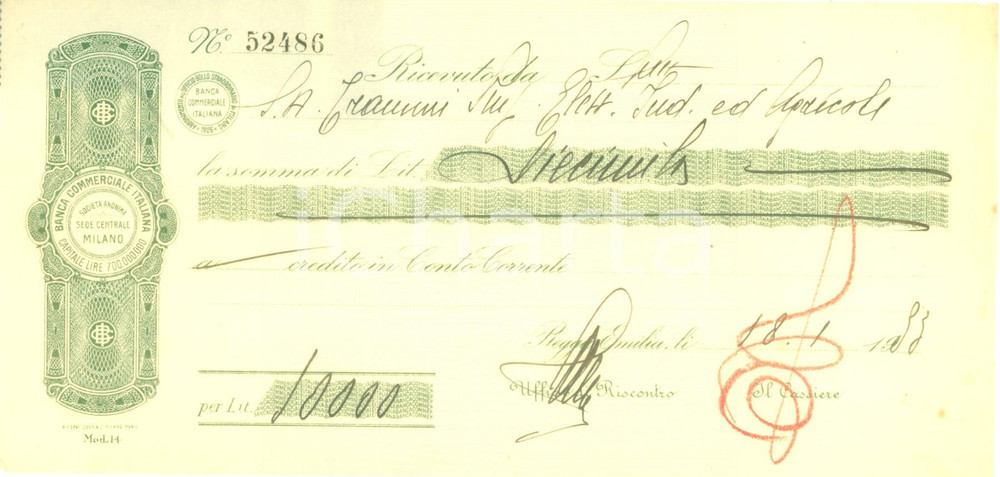 Nº 52486
Ricevuto da Spett
BANCA COMMERCIALE ITALIANA
1926
S.A. Ind. ed Agricole
la somma di Lit. Diecimila
BANCA COMMERCIALE ITALIANA
SOCIETÀ ANONIMA
SEDE CENTRALE
MILANO
CAPITALE LIRE 700.000.000
iCharta
a credito in Conto Corrente
Reggio Emilia, li 18.1 1933
Uffi Riscontro Il Cassiere
per Lit. 10000
Mod. 14